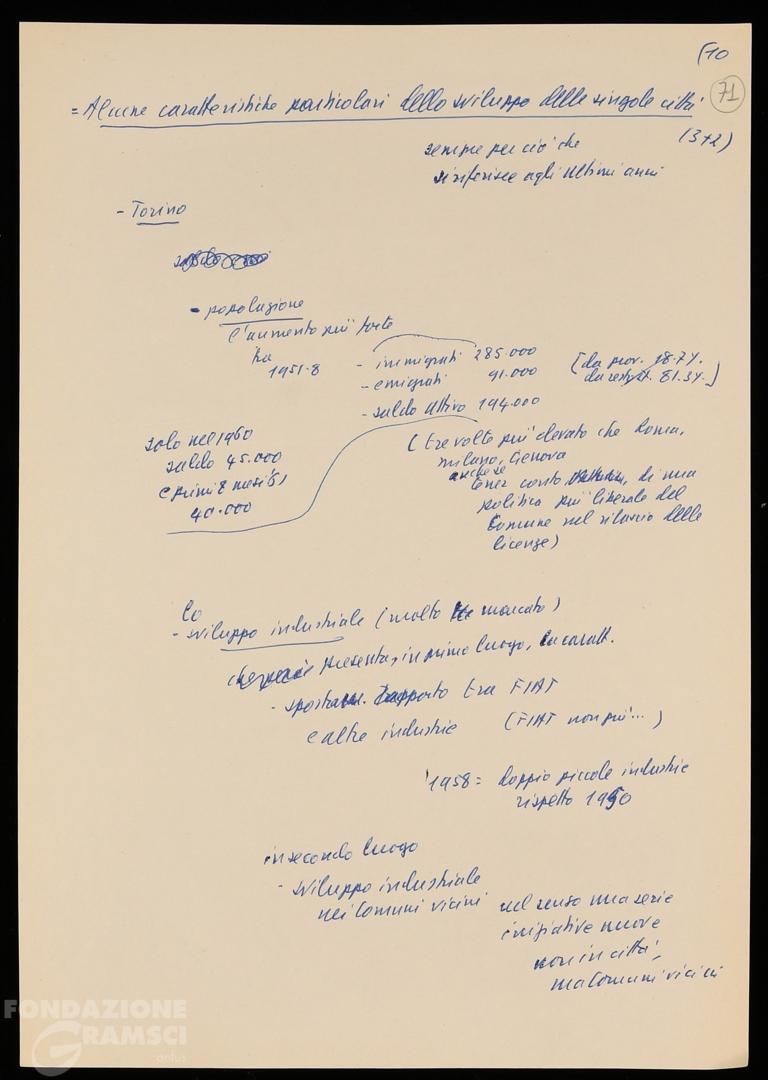 (10
71
= Alcune caratteristiche particolari dello sviluppo delle singole città
(3+2)
sempre per ciò che
si riferisce agli ultimi anni
- Torino
- popolazione
l'aumento più forte
tra
1951-8
- immigrati 285.000
- emigrati 91.000
- saldo attivo 194.000
(da prov. 18.7%.
da rest. 81.3%.)
solo nel 1960
saldo 45.000
(primi 8 mesi 61
40.000
(tre volte più elevato che Roma,
Milano, Genova
anche se
tener conto, di una
politica più liberale del
Comune nel rilascio delle
licenze)
lo
- sviluppo industriale (molto marcato)
che presenta, in primo luogo, la caratt.
- spostam. rapporto tra FIAT
e altre industrie (FIAT non più...)
1958 = doppio piccole industrie
rispetto 1950
in secondo luogo
- sviluppo industriale
nei Comuni vicini
nel senso una serie
iniziative nuove
non in città,
ma Comuni vicini
FONDAZIONE
GRAMSCI
onlus